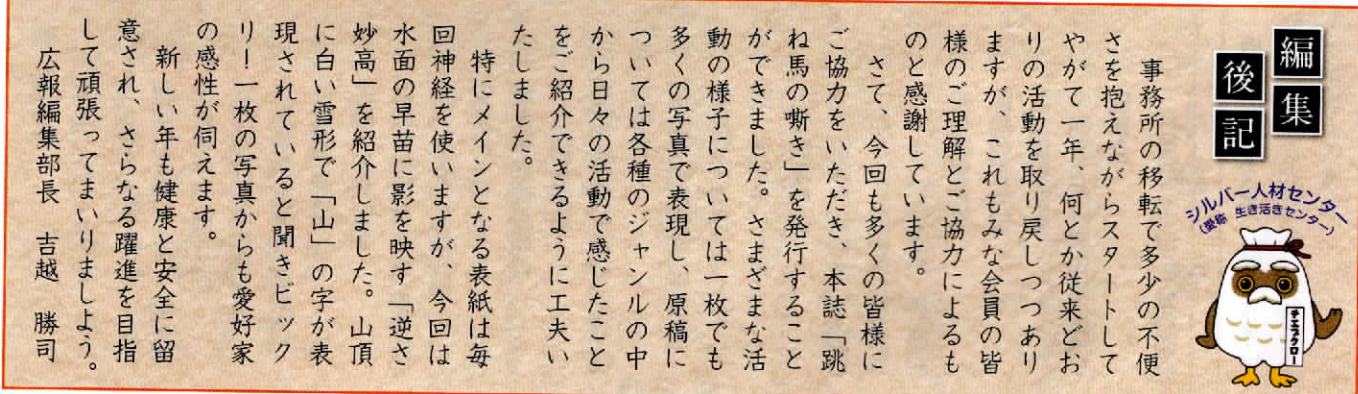 編集
後記
シルバー人材センター
(愛称 生き活きセンター)
チエブクロー
事務所の移転で多少の不便
さを抱えながらスタートして
やがて一年、何とか従来どお
りの活動を取り戻しつつあり
ますが、これもみな会員の皆
様のご理解とご協力によるも
のと感謝しています。
さて、今回も多くの皆様に
ご協力をいただき、本誌「跳
ね馬の嘶き」を発行すること
ができました。さまざまな活
動の様子については一枚でも
多くの写真で表現し、原稿に
ついては各種のジャンルの中
から日々の活動で感じたこと
をご紹介できるように工夫い
たしました。
特にメインとなる表紙は毎
回神経を使いますが、今回は
水面の早苗に影を映す「逆さ
妙高」を紹介しました。山頂
に白い雪形で「山」の字が表
現されていると聞きビック
リ！一枚の写真からも愛好家
の感性が伺えます。
新しい年も健康と安全に留
意され、さらなる躍進を目指
して頑張ってまいりましょう。
広報編集部長 吉越 勝司